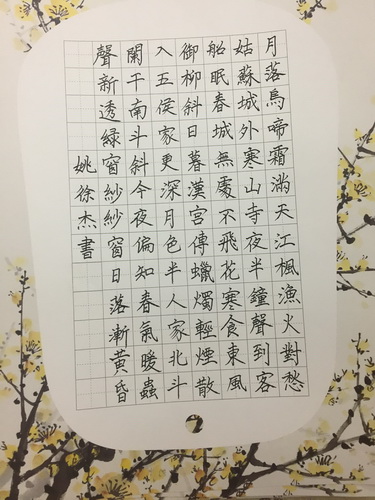 月落烏啼霜滿天江楓漁火對愁
姑蘇城外寒山寺夜半鐘聲到客
船眠春城無處不飛花寒食東風
御柳斜日暮漢宮傳蠟燭輕煙散
入五侯家更深月色半人家北斗
闌干南斗斜今夜偏知春氣暖蟲
聲新透綠窗紗紗窗日落漸黃昏
姚徐杰書